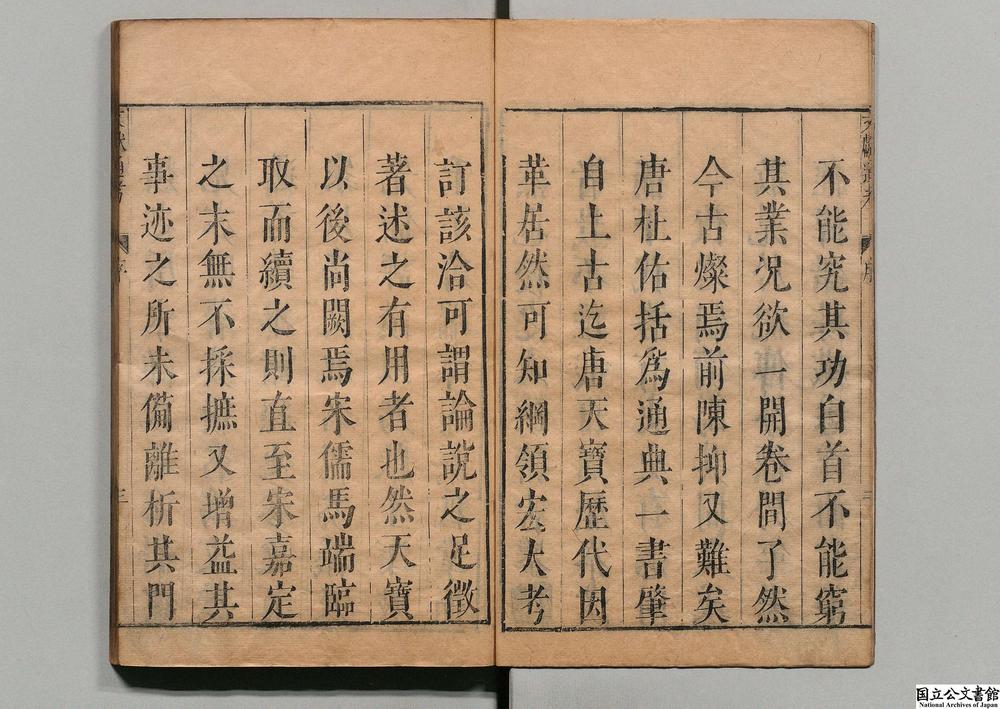 不能究其功白首不能窮
其業况欲一開卷間了然
今古燦焉前陳抑又難矣
唐杜佑括爲通典一書肇
自上古迄唐天寶歷代因
革居然可知綱領宏大考
訂該洽可謂論説之足徵
著述之有用者也然天寶
以後尚闕焉宋儒馬端臨
取而續之則直至宋嘉定
之末無不採摭又增益其
事迹之所未備離析其門
序
三
国立公文書館
National Archives of Japan